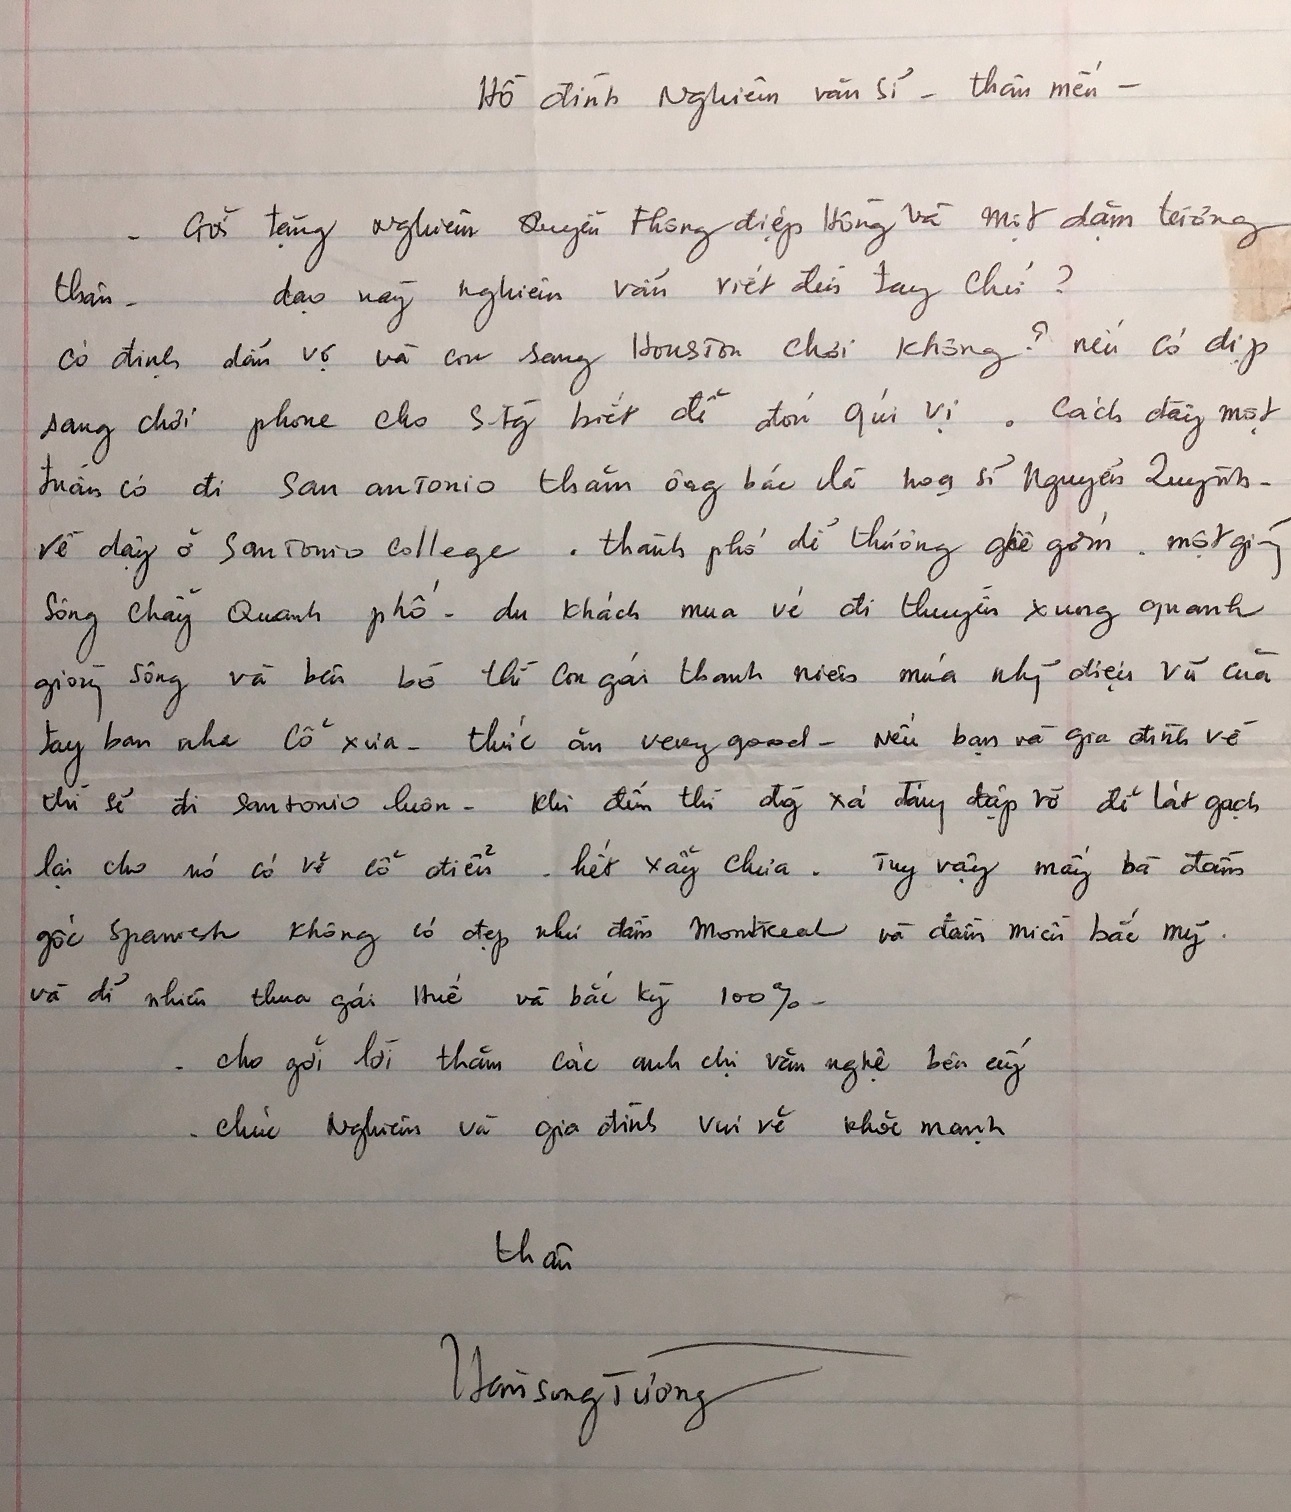 Hồ đình Nghiêm văn sĩ - thân mến -
- Gởi tặng nghiêm Quyển Thông điệp Hồng và một dặm trường
thân - dạo này nghiêm vẫn viết đều tay chứ?
có định dẫn vợ và con sang Houston chơi không? nếu có dịp
sang chơi phone cho S.Tg biết để đón quí vị. Cách đây một
tuần có đi San antonio thăm ông bác là hoạ sĩ Nguyễn Quỳnh -
về dạy ở Santonio College. thành phố dễ thương ghê gớm. một giòng
sông chảy Quanh phố - du khách mua vé đi thuyền xung quanh
giòng sông và bên bờ thì con gái thanh niên múa những điệu vũ của
tay ban nha cổ xưa - thức ăn very good - Nếu bạn và gia đình về
thì sẽ đi Santonio luôn - khi đến thì đường xá đang đập vỡ để lát gạch
lại cho nó có vẻ cổ điển. hết xẩy chưa. Tuy vậy mấy bà đầm
gốc Spanish không có đẹp như đầm Montreal và đầm miền bắc mỹ.
và dĩ nhiên thua gái Huế và bắc kỳ 100% -
- cho gởi lời thăm các anh chị văn nghệ bên ấy
- chúc Nghiêm và gia đình vui vẻ khỏe mạnh
thân
Hàn Song Tường